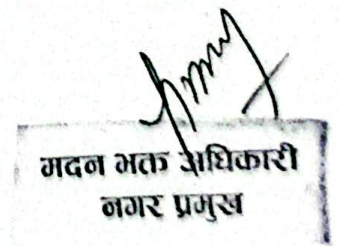 मदन भक्त अधिकारी
नगर प्रमुख